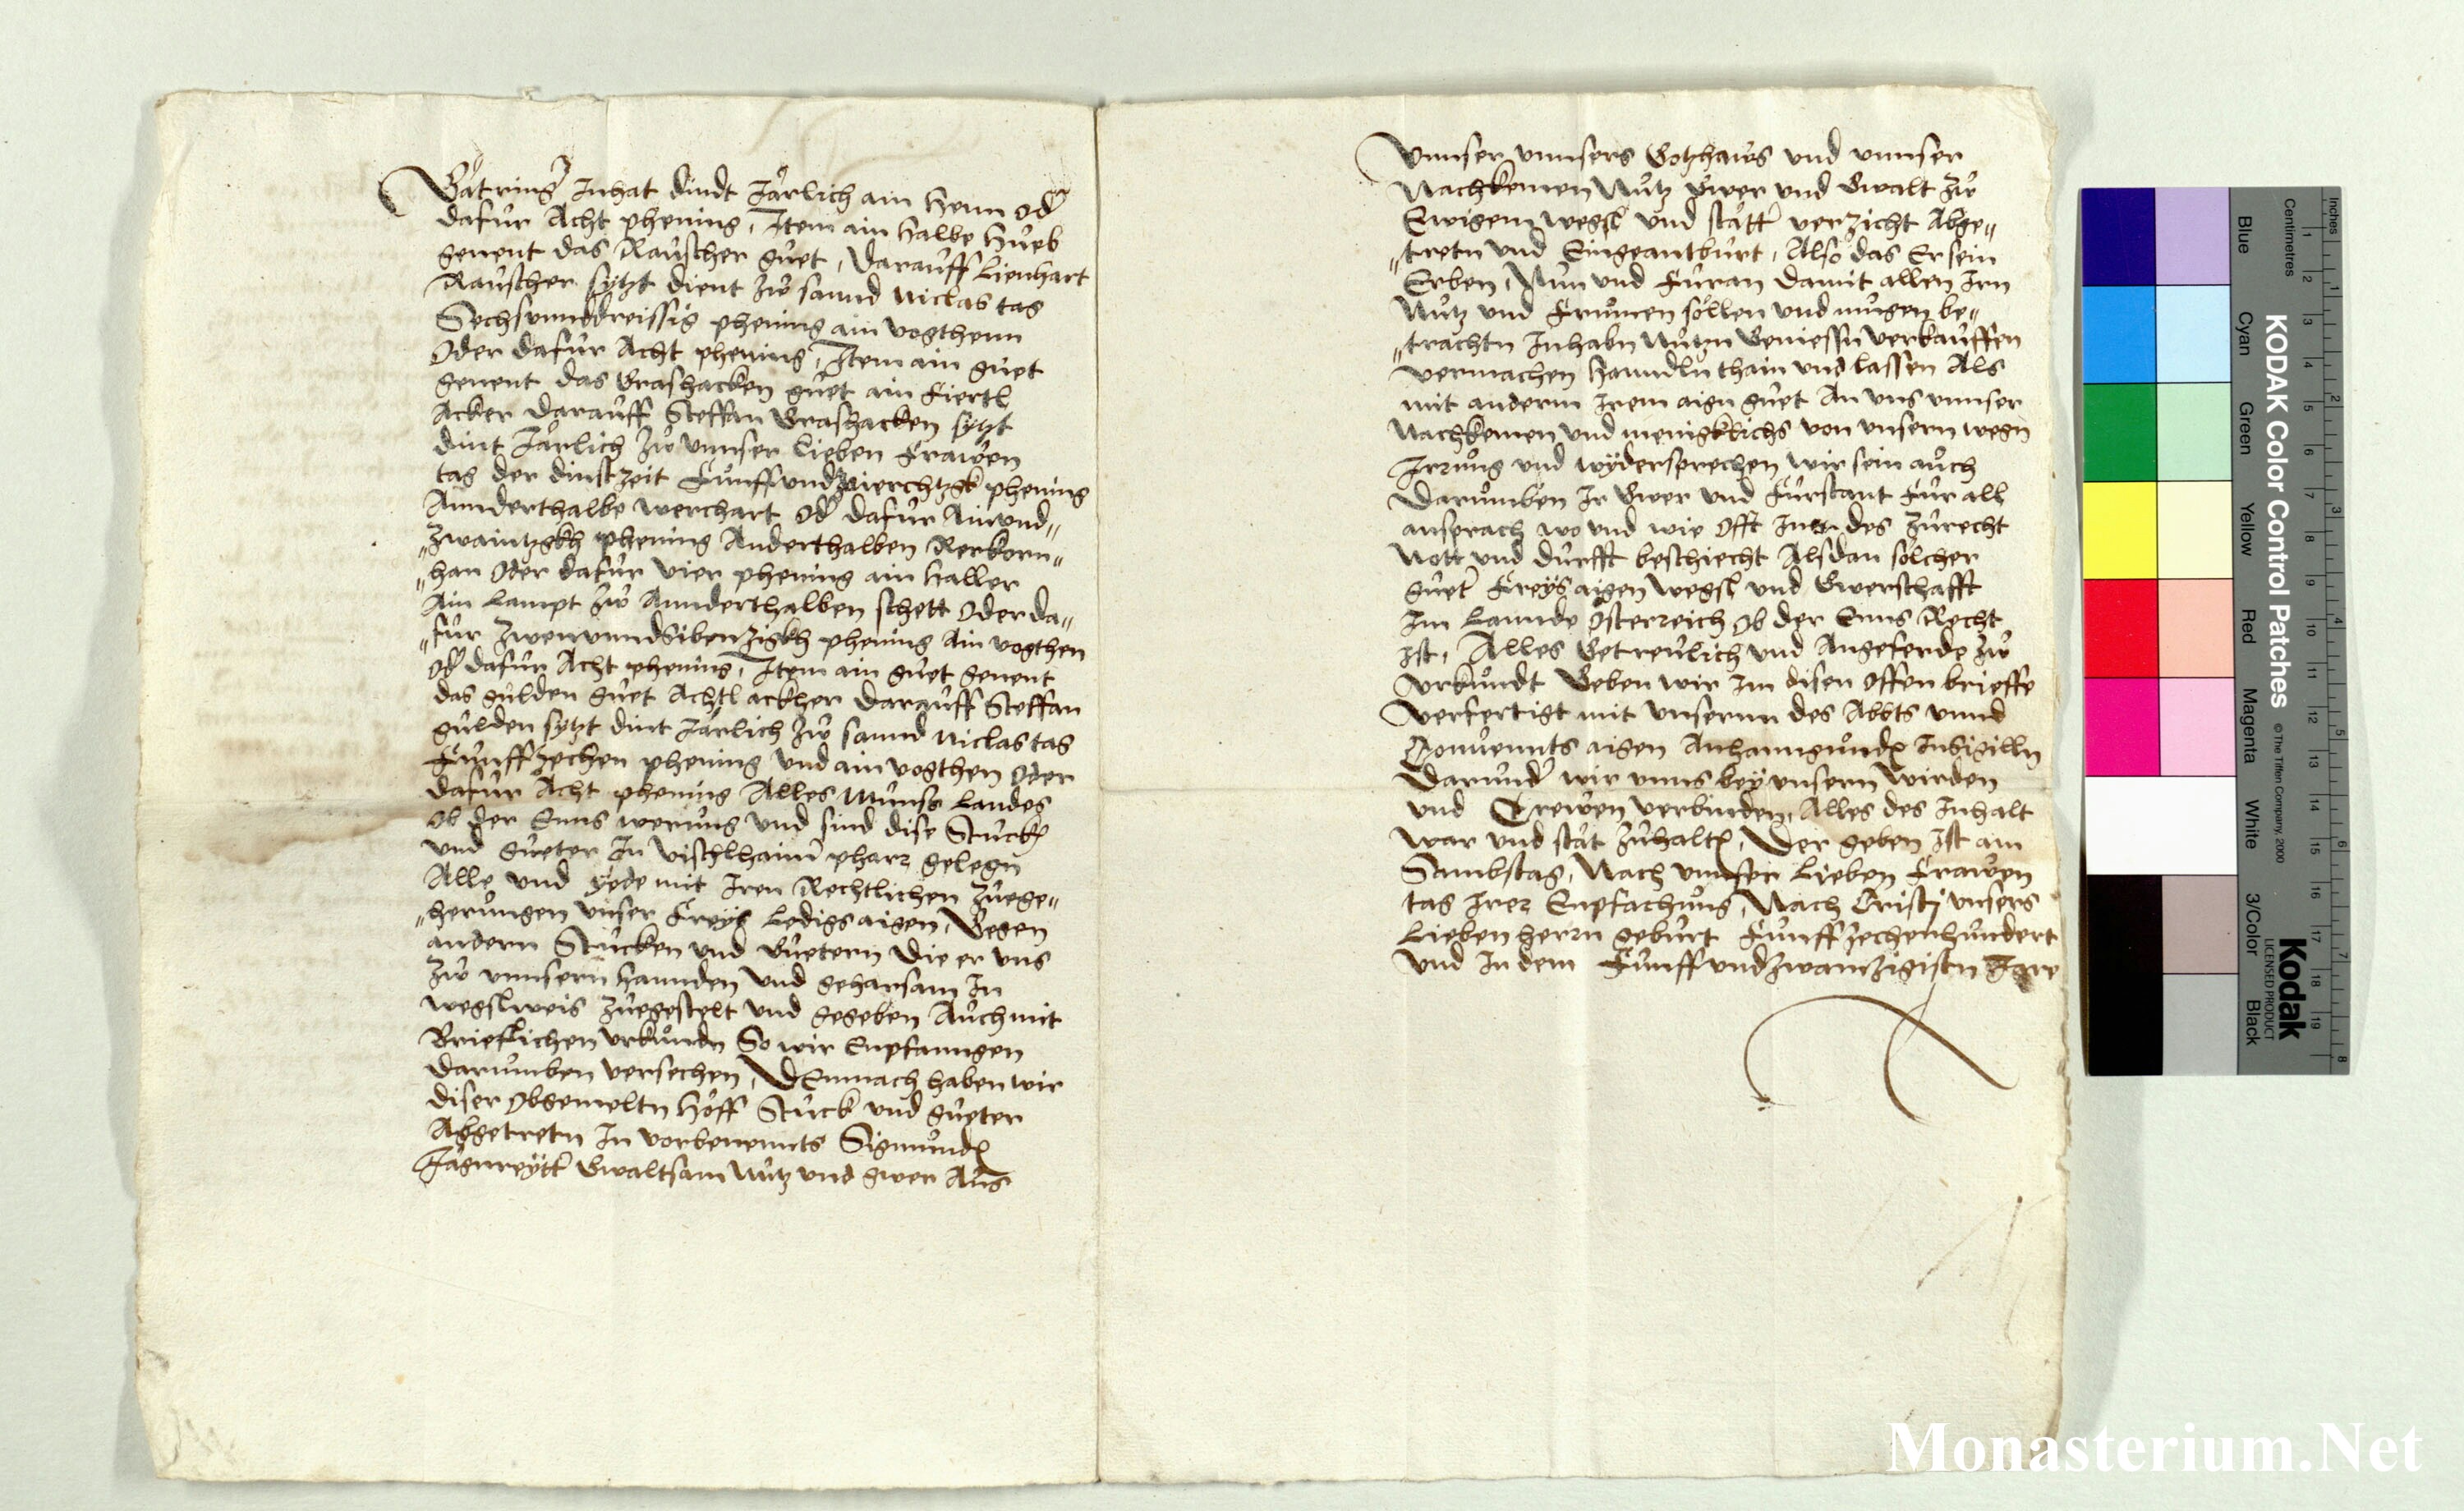 Gätringer Inhat dindt Järlich ain henn oder
dafur Acht phening, Item ain halbe hueb
genent das Rauscher guet, Darauff Lienhart
Rauscher sytzt dient zw sannd Niclas tag
Sechsunnddreissig phening ain vogthenn
Oder dafur Acht phening, Item ain guet
genent das Graszacken guet ain Fiertl
Acker Darauff Steffan Graszacken sytzt
dint Järlich zw unnser lieben Frawen
tag der dinstzeit Funffundvierchtzgk phening
Annderthalbe werchart Od dafur Ainund„
„zwaintzgkh phening Anderthalben Rerkorn„
„han Oder dafur vier phening ain haller
Ain Lampt zw Annderthalben schett Oder da„
„fur zwenunndsibenzigkh phening Ain vogthen
Od dafur Acht phening, Item ain guet genent
das gulden guet Achtl ackher Darauff Steffan
gulden sytzt dint Järlich zw sannd Niclas tag
Funffzechen phening und ain vogthen Oder
dafur Acht phening Alles Munss Landes
Ob der Enns werung und sind dise Stuckh
und gueter In vischlhaimer pharr gelegn
Alle und yede mit Iren Rechtlichen Zuege„
„herungen unser Freys Ledigs aigen, Gegen
andern Stucken und Guetern Die er uns
zw unnsern hannden und gehorsam In
wegslweis Zuegestelt und gegeben Auch mit
Brieflichen urkundn So wir Enpfanngen
Darumben versechen, Demnach haben wir
diser Obgemeltn Hoff Stuck und gueter
Abgetretn In vorbenennts Sigmunds
Jägnreytter Gwaltsam Nutz und gwer Aus
Unnser unnsers Gotzhaws und unnser
Nachkemen Nutz Gwer und Gwalt zw
Ewigem wegsl und stätter verzicht Abge„
„tretn und Eingeantburt, Also das Er sein
Erben, Nun und Furan damit allen Irn
Nutz und Frumen söllen und mugen be„
„trachtn Inhabn Nutzn Geniessn verkauffen
vermachen Hanndln thain und lassen Als
mit anderm Irem aign guet An uns unnser
Nachkemen und menigklichs von unsern wegn
Irrung und wydersprechen wir sein auch
Darumben Ir Gwer und Furstant Fur all
ansprach wo und wie Offt In des Zurecht
Nott und durfft beschiecht Alsdan solcher
gueter Freys aigen wegsl und Gwerschafft
Im Lannde Osterreich Ob der Enns Recht
ist, Alles Getreulich und Angeferde zw
Urkundt Geben wir Im disen Offen brieffe
verfertigt mit unserm des Abbts unnd
Convennts aigen Anhanngunden Insigilln
Darunder wir unns bey unsern wirden
und Trewen verbinden, Alles des Inhalt
war und stät Zuhalten, Der geben ist am
Sambstag, Nach unnser Lieben Frawen
tag Irer Enpfachung, Nach Cristj unsers
Lieben herrn geburt Funffzechenhundert
und In dem Funffundzwanzigistn Jare
Inches
Centimetres
Blue
Cyan
Green
Yellow
Red
Magenta
White
3/Color
Black
KODAK Color Control Patches
© The Tiffen Company, 2000
Kodak
LICENSED PRODUCT
Monasterium.Net